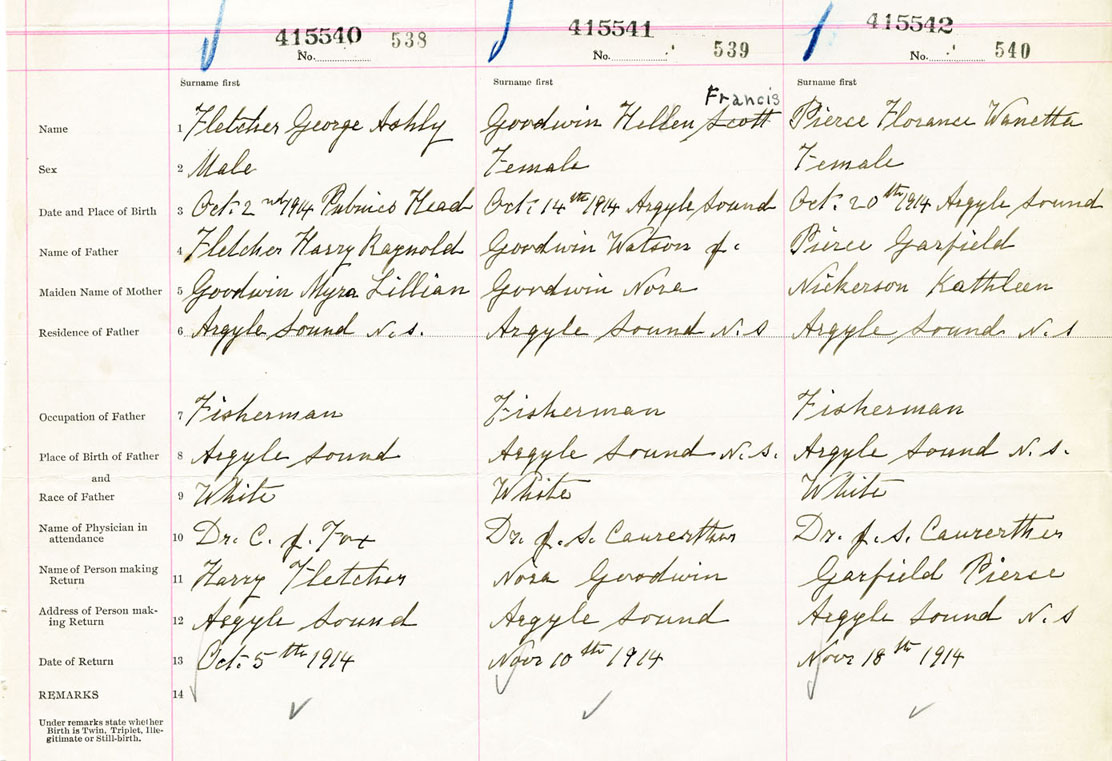 415540 538 415541 539 415542 540
No. No. No.
Surname first Surname first Surname first
Francis
Name 1 Fletcher George Ashly Goodwin Hellen Scott Pierce Florance Wanetta
Sex 2 Male Female Female
Date and Place of Birth 3 Oct. 2nd 1914 Pubnico Head Oct. 14th 1914 Argyle Sound Oct. 20th 1914 Argyle Sound
Name of Father 4 Fletcher Harry Raynold Goodwin Watson J. Pierce Garfield
Maiden Name of Mother 5 Goodwin Myra Lillian Goodwin Nora Nickerson Kathleen
Residence of Father 6 Argyle Sound N.S. Argyle Sound N.S Argyle Sound N.S
Occupation of Father 7 Fisherman Fisherman Fisherman
Place of Birth of Father 8 Argyle Sound Argyle Sound N.S. Argyle Sound N.S.
and
Race of Father 9 White White White
Name of Physician in
attendance 10 Dr. C. J. Fox Dr. J. S. Dr. J. S.
Name of Person making
Return 11 Harry Fletcher Nora Goodwin Garfield Pierce
Address of Person mak-
ing Return 12 Argyle Sound Argyle Sound Argyle Sound N.S
Date of Return 13 Oct. 5th 1914 Novr 10th 1914 Novr 18th 1914
REMARKS 14
Under remarks state whether
Birth is Twin, Triplet, Ille-
gitimate or Still-birth.